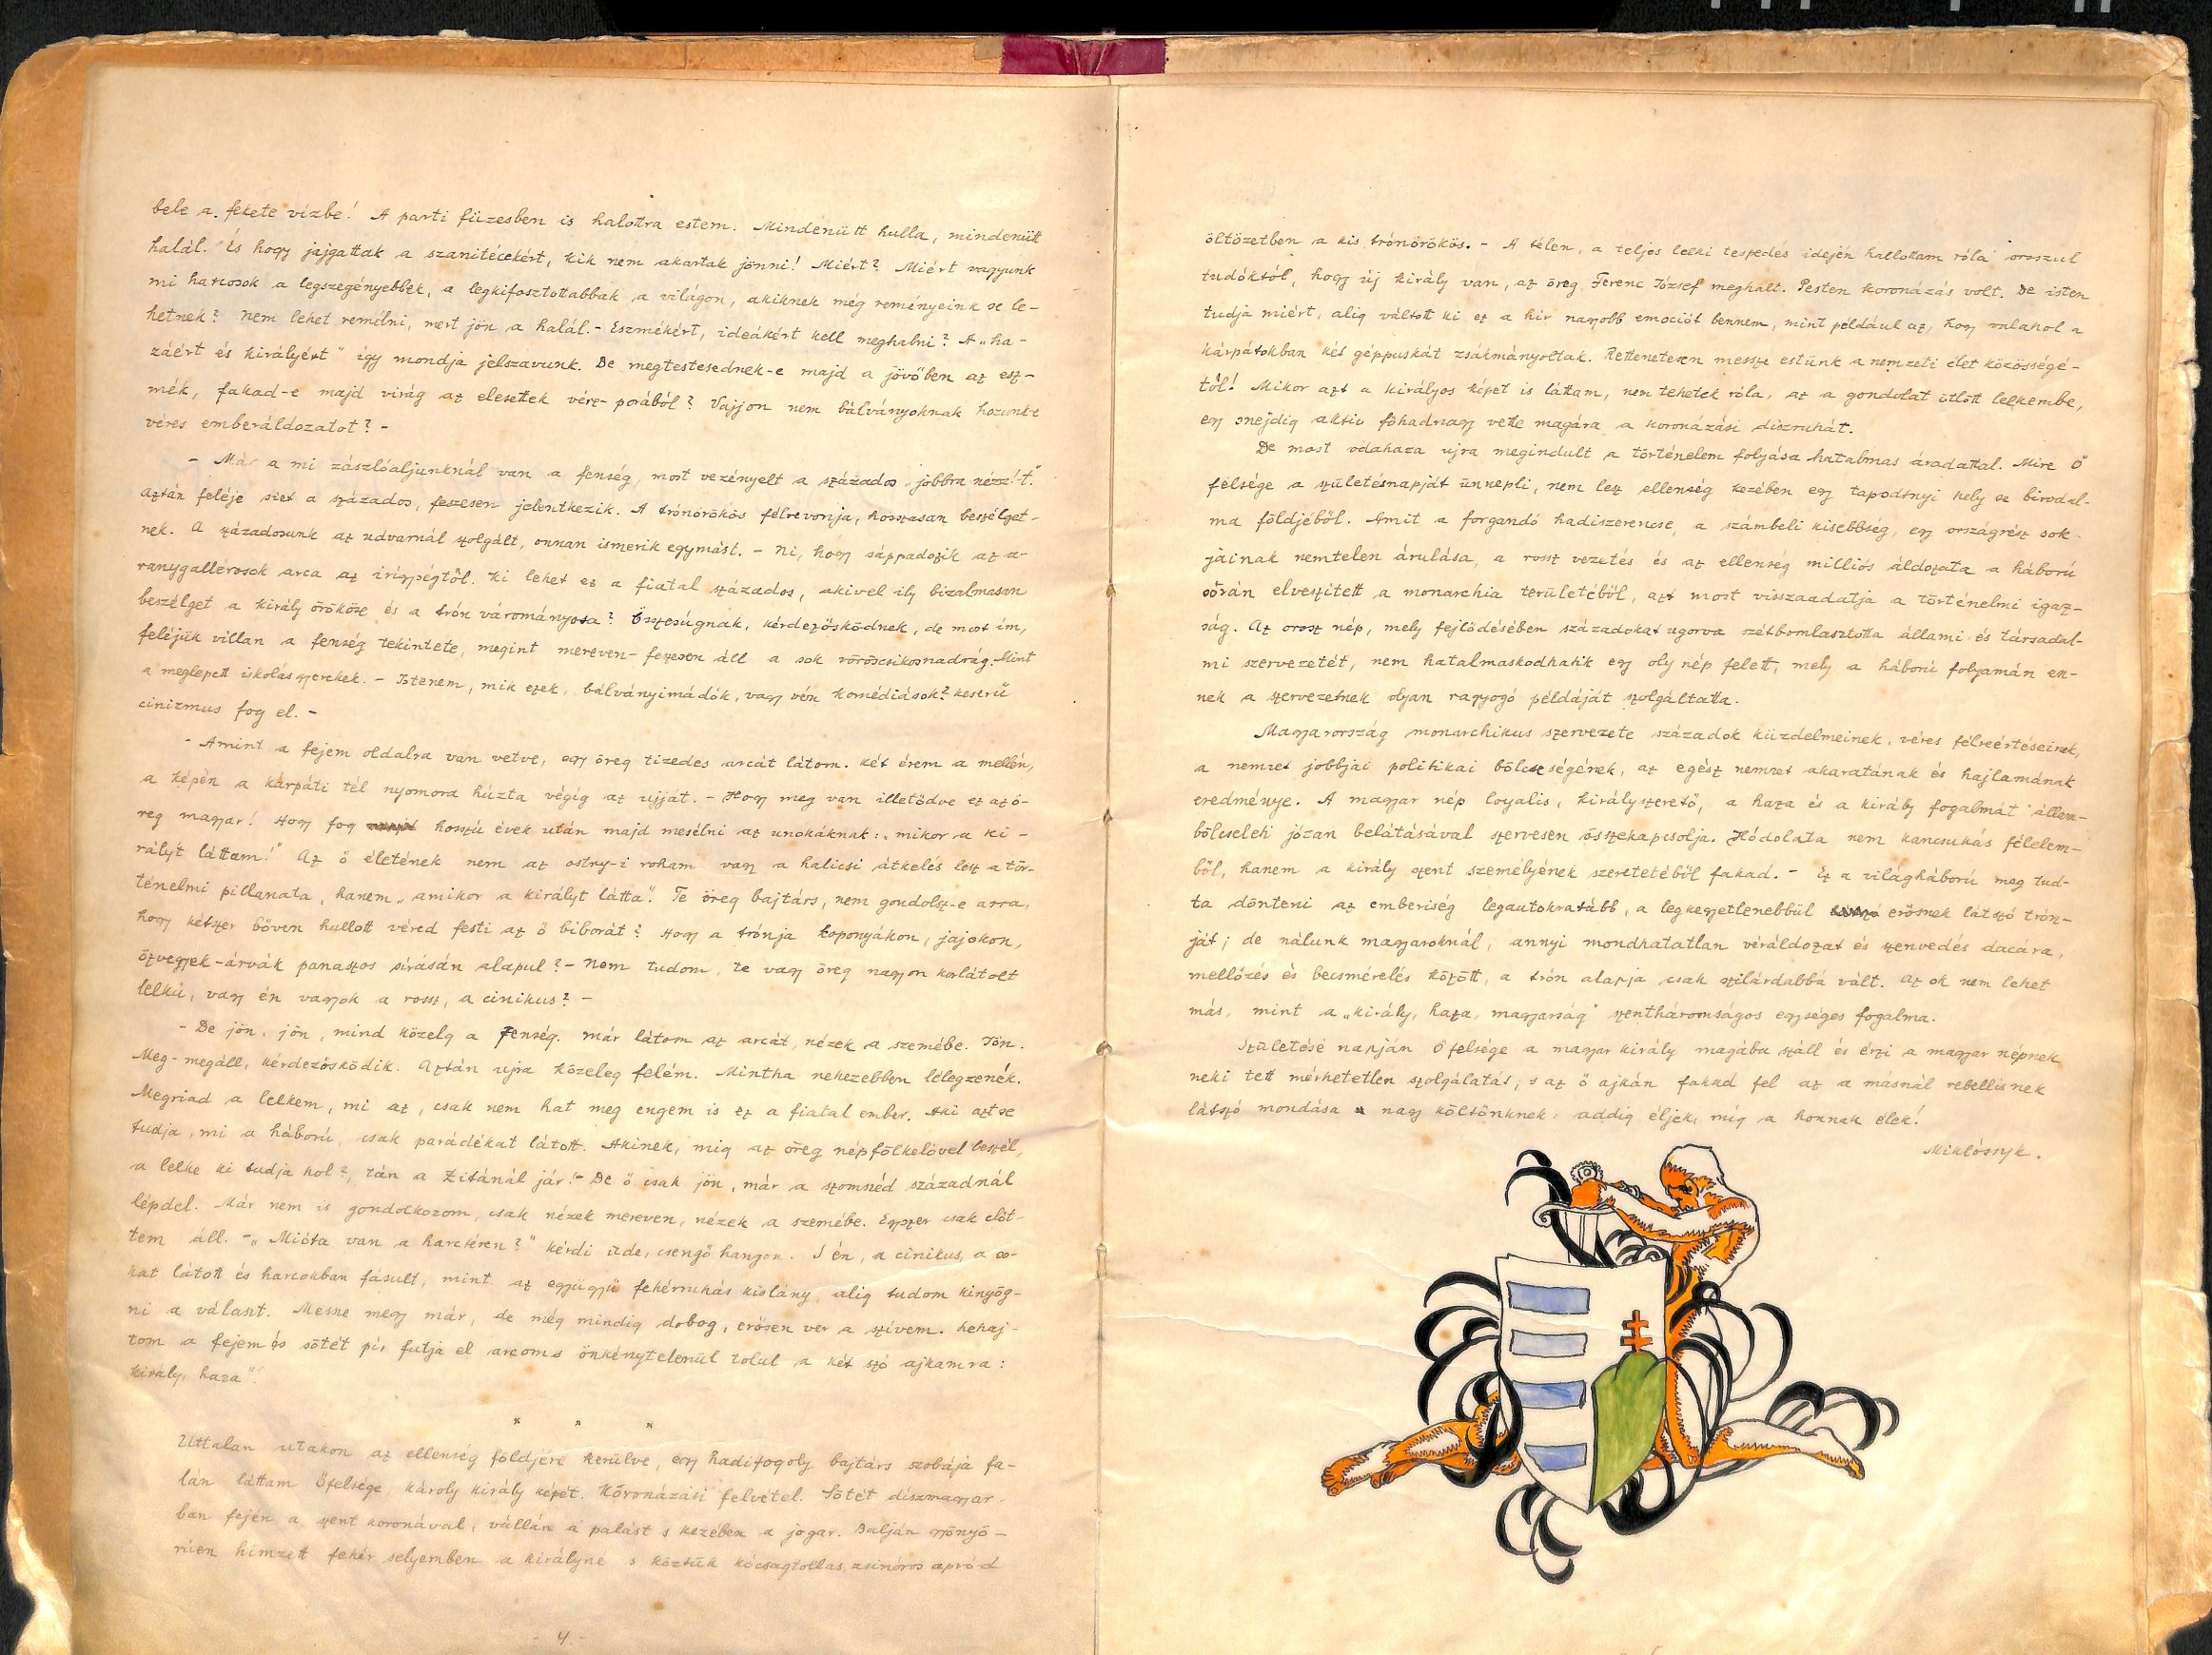 bele a fekete vizbe! A parti füzesben is halottra estem. Mindenütt hulla, mindenütt
halál. És hogy jajgattak a szanitécekért, kik nem akartak jönni! Miért? Miért vagyunk
mi harcosok a legszegényebbek, a legkifosztottabbak a világon, akiknek még reményeink se le-
hetnek? Nem lehet remélni, mert jön a halál. - Eszmékért, ideákért kell meghalni? A „ha-
záért és királyért" így mondja jelszavunk. De megtestesednek-e majd a jövőben az esz-
mék, fakad-e majd virág az elesettek vére-porából? Vajjon nem bálványoknak hozunk-e
véres emberáldozatot? -
- Már a mi zászlóaljunknál van a fenség, most vezényelt a százados „jobbra nézz!"-t.
Aztán feléje siet a százados, feszesen jelentkezik. A trónörökös félrevonja, hosszasan beszélget-
nek. A századosunk az udvarnál szolgált, onnan ismerik egymást. - Ni, hogy sáppadozik az a-
ranygallérosok arca az irigységtől. Ki lehet ez a fiatal százados, akivel ily bizalmasan
beszélget a király örököse és a trón várományosa? Összesúgnak, kérdezősködnek, de most ím,
feléjük villan a fenség tekintete, megint mereven-feszesen áll a sok vöröscsikosnadrág. Mint
a meglepett iskolásgyerekek. - Istenem, mik ezek, bálványimádók, vagy vén komédiások? Keserű
cinizmus fog el. -
- Amint a fejem oldalra van vetve, egy öreg tizedes arcát látom. Két érem a mellén,
a képén a kárpáti tél nyomora húzta végig az ujját. - Hogy meg van illetődve ez az ö-
reg magyar! Hogy fog hosszú évek után majd mesélni az unokáknak: „mikor a ki-
rályt láttam!" Az ő életének nem az ostry-i roham vagy a halicsi átkelés lesz a tör-
ténelmi pillanata, hanem „amikor a királyt látta". Te öreg bajtárs, nem gondolsz-e arra,
hogy kétszer bőven hullott véred festi az ő biborát? Hogy a trónja koponyákon, jajokon,
özvegyek-árvák panaszos sírásán alapul? - Nem tudom, te vagy öreg nagyon korlátolt
lelkü, vagy én vagyok a rossz, a cinikus? -
- De jön, jön, mind közelg a fenség. Már látom az arcát, nézek a szemébe. Jön.
Meg-megáll, kérdezősködik. Aztán ujra közeleg felém. Mintha nehezebben lélegzenék.
Megriad a lelkem, mi az, csak nem hat meg engem is ez a fiatal ember. Aki azt se
tudja, mi a háború, csak parádékat látott. Akinek, mig az öreg népfölkelővel beszél,
a lelke ki tudja hol?, tán a Zitánál jár! - De ő csak jön, már a szomszéd századnál
lépdel. Már nem is gondolkozom, csak nézek mereven, nézek a szemébe. Egyszer csak előt-
tem áll. - „Mióta van a harctéren?" kérdi üde, csengő hangon. S én, a cinikus, a so-
kat látott és harcokban fásult, mint az együgyü fehérruhás kislány alig tudom kinyög-
ni a választ. Messze megy már, de még mindig dobog, erősen ver a szívem. Lehaj-
tom a fejem és sötét pír futja el arcom s önkénytelenül tolul a két szó ajkamra:
„király, haza".
* * *
Uttalan utakon az ellenség földjére kerülve, egy hadifogoly bajtárs szobája fa-
lán láttam Őfelsége Károly király képét. Koronázási felvétel. Sötét díszmagyar-
ban fején a szent koronával, vállán a palást s kezében a jogar. Balján gyönyö-
rűen hímzett fehér selyemben a királyné s köztük kócsagtollas, zsinóros apród
- 4 -
öltözetben a kis trónörökös. - A télen, a teljes lelki tespedés idején hallottam róla oroszul
tudóktól, hogy új király van, az öreg Ferenc József meghalt. Pesten koronázás volt. De isten
tudja miért, alig váltott ki ez a hír nagyobb emociót bennem, mint például az, hogy valahol a
kárpátokban két géppuskát zsákmányoltak. Rettenetesen messze estünk a nemzeti élet közösségé-
től! Mikor azt a királyos képet is láttam, nem tehetek róla, az a gondolat ötlött lelkembe,
egy snejdig aktiv főhadnagy vette magára a koronázási diszruhát.
De most odahaza ujra megindult a történelem folyása hatalmas áradattal. Mire ő
felsége a születésnapját ünnepli, nem lesz ellenség kezében egy tapodtnyi hely se birodal-
ma földjéből. Amit a forgandó hadiszerencse, a számbeli kisebbség, egy országrész sok-
jainak nemtelen árulása, a rossz vezetés és az ellenség milliós áldozata a háború
során elveszített a monarchia területéből, azt most visszaadatja a történelmi igaz-
ság. Az orosz nép, mely fejlődésében századokat ugorva szétbomlasztotta állami és társadal-
mi szervezetét, nem hatalmaskodhatik egy oly nép felett, mely a háború folyamán en-
nek a szervezetnek olyan ragyogó példáját szolgáltatta.
Magyarország monarchikus szervezete századok küzdelmeinek, véres félreértéseinek,
a nemzet jobbjai politikai bölcseségének, az egész nemzet akaratának és hajlamának
eredménye. A magyar nép loyalis, királyszerető, a haza és a király fogalmát állam-
bölcseleti józan belátásával szervesen összekapcsolja. Hódolata nem kancsukás félelem-
ből, hanem a király szent személyének szeretetéből fakad. - Ez a világháború meg tud-
ta dönteni az emberiség legautokratább, a legkegyetlenebbül erősnek látszó trón-
ját; de nálunk magyaroknál, annyi mondhatatlan véráldozat és szenvedés dacára,
mellőzés és becsmérelés között, a trón alapja csak szilárdabbá vált. Az ok nem lehet
más, mint a „király, haza, magyarság" szentháromságos egységes fogalma.
Születése napján Őfelsége a magyar király magába száll és érzi a magyar népnek
neki tett mérhetetlen szolgálatát, s az ő ajkán fakad fel az a másnál rebellisnek
látszó mondása nagy költőnknek: addig éljek, míg a honnak élek!
Miklóssyk.